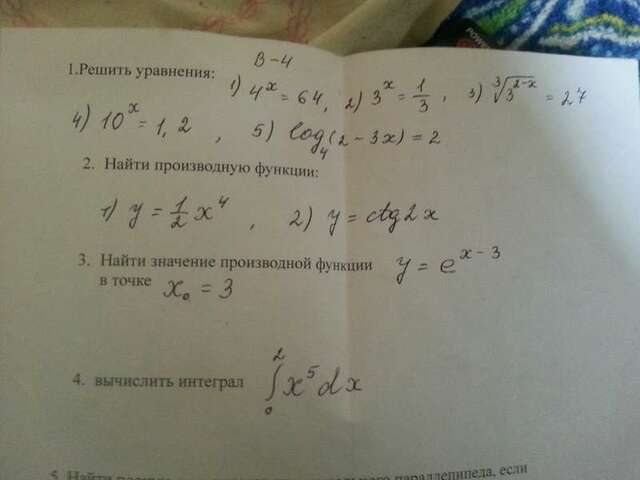 В-4
1.Решить уравнения: 1) 4^x = 64, 2) 3^x = 1/3, 3) ∛(3^(2-x)) = 27
4) 10^x = 1,2 , 5) log₄(2 - 3x) = 2
2. Найти производную функции:
1) y = 1/2 x⁴ , 2) y = ctg2x
3. Найти значение производной функции y = e^(x-3)
в точке x₀ = 3
4. вычислить интеграл ∫₀² x⁵dx
5. Найти параллепипеда, если